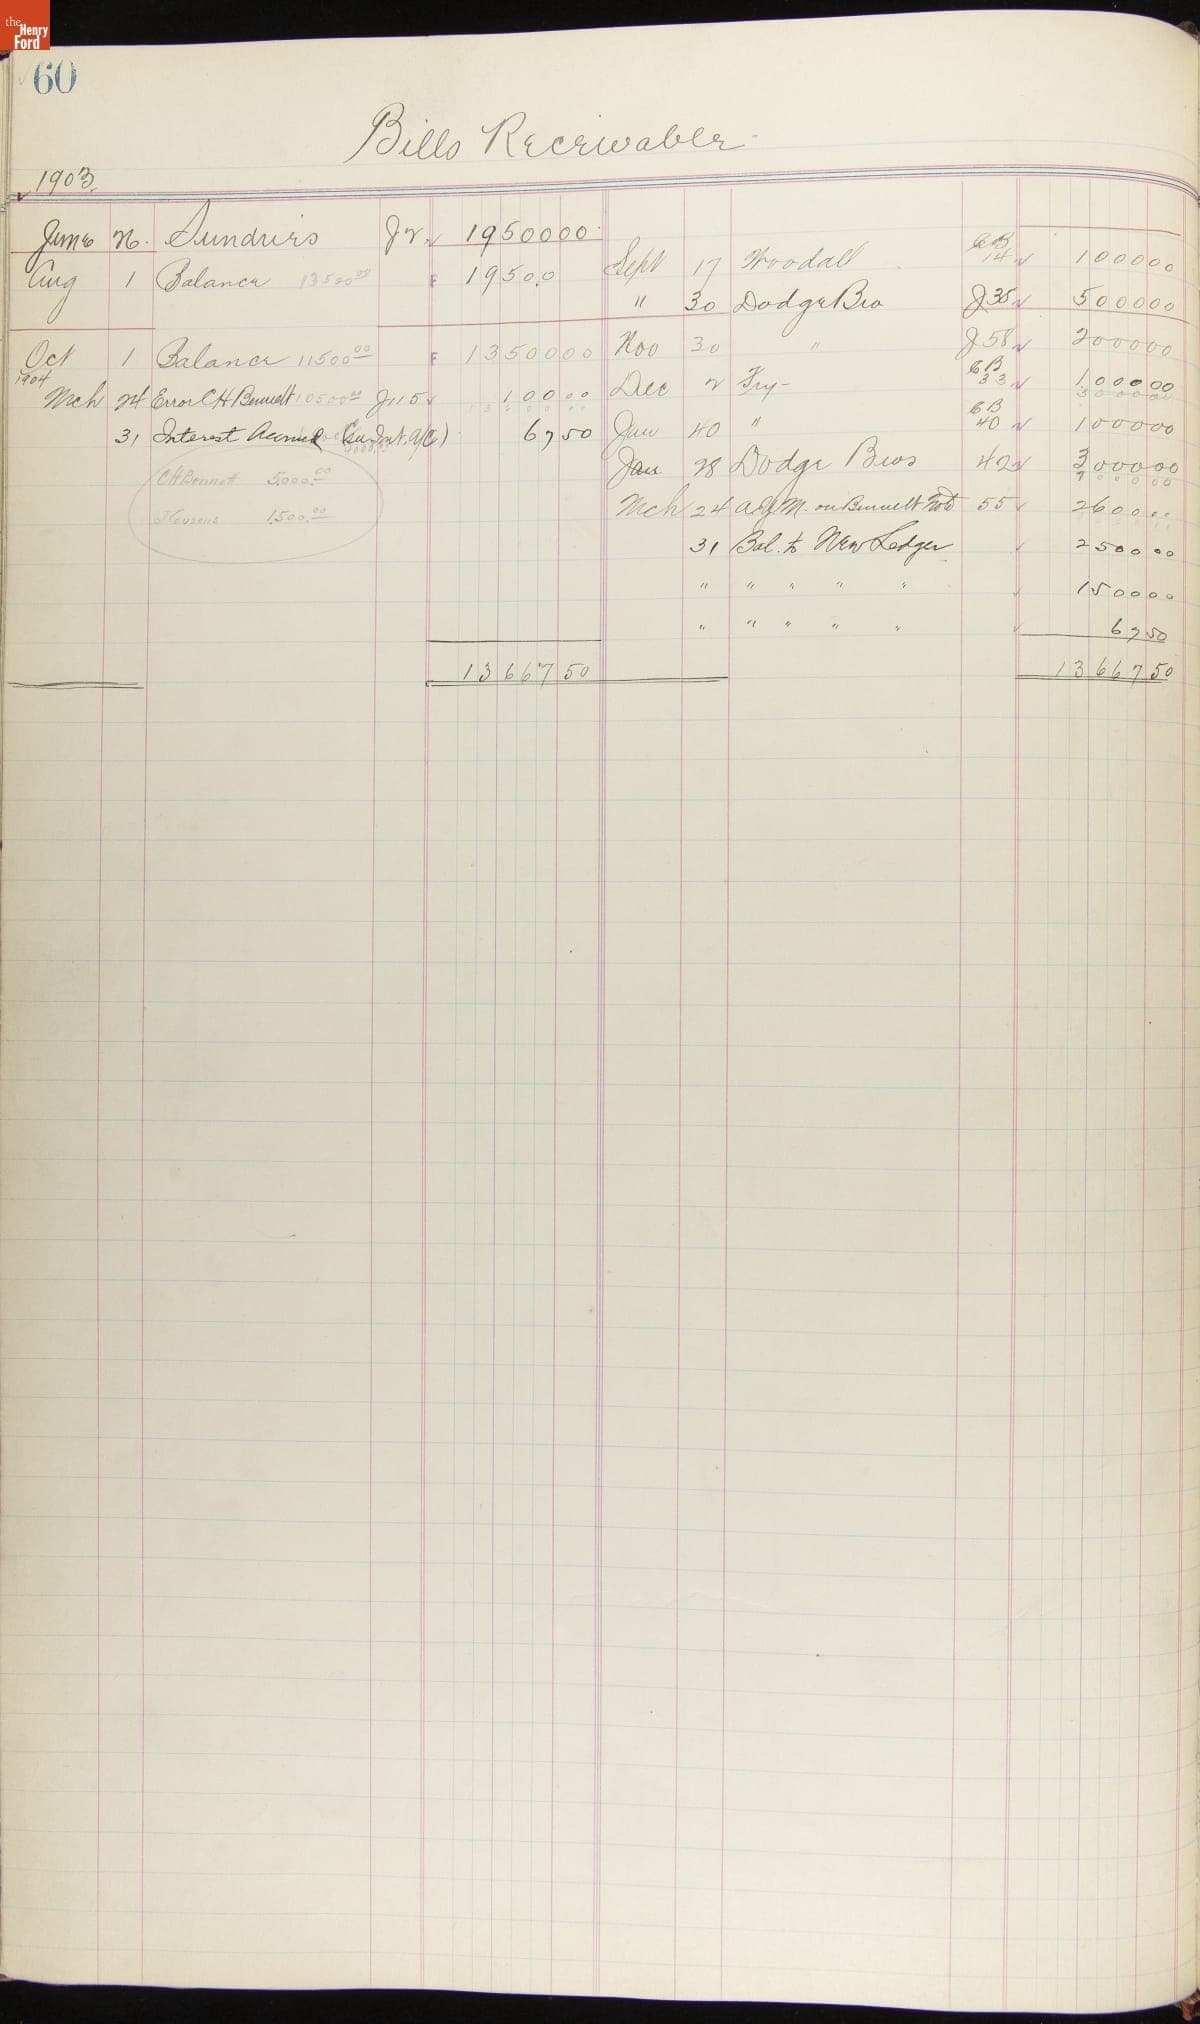 the Henry Ford
60
Bills Receivable
1903
June 26. Sundries J2 1950000
Aug 1 Balance 13500 00 F 19500
Sept 17 Woodall CB 14 100000
" 30 Dodge Bro J35 500000
Oct 1 Balance 11500 00 F 1350000
Nov 30 " J58 200000
1904
Mch 24 Error C H Bennett 10500 00 J115 10000
Dec 2 Fry- CB 33 100000
31 Interest Accrued (See Int. A/C) 6750
Jan " CB 40 100000
Jan 28 Dodge Bros 42 300000
C H Bennett 5000.00
1500.00
Mch 24 on Bennett Note 55 260000
31 Bal. to New Ledger 250000
" " " " " 150000
" " " " " 6750
1366750 1366750